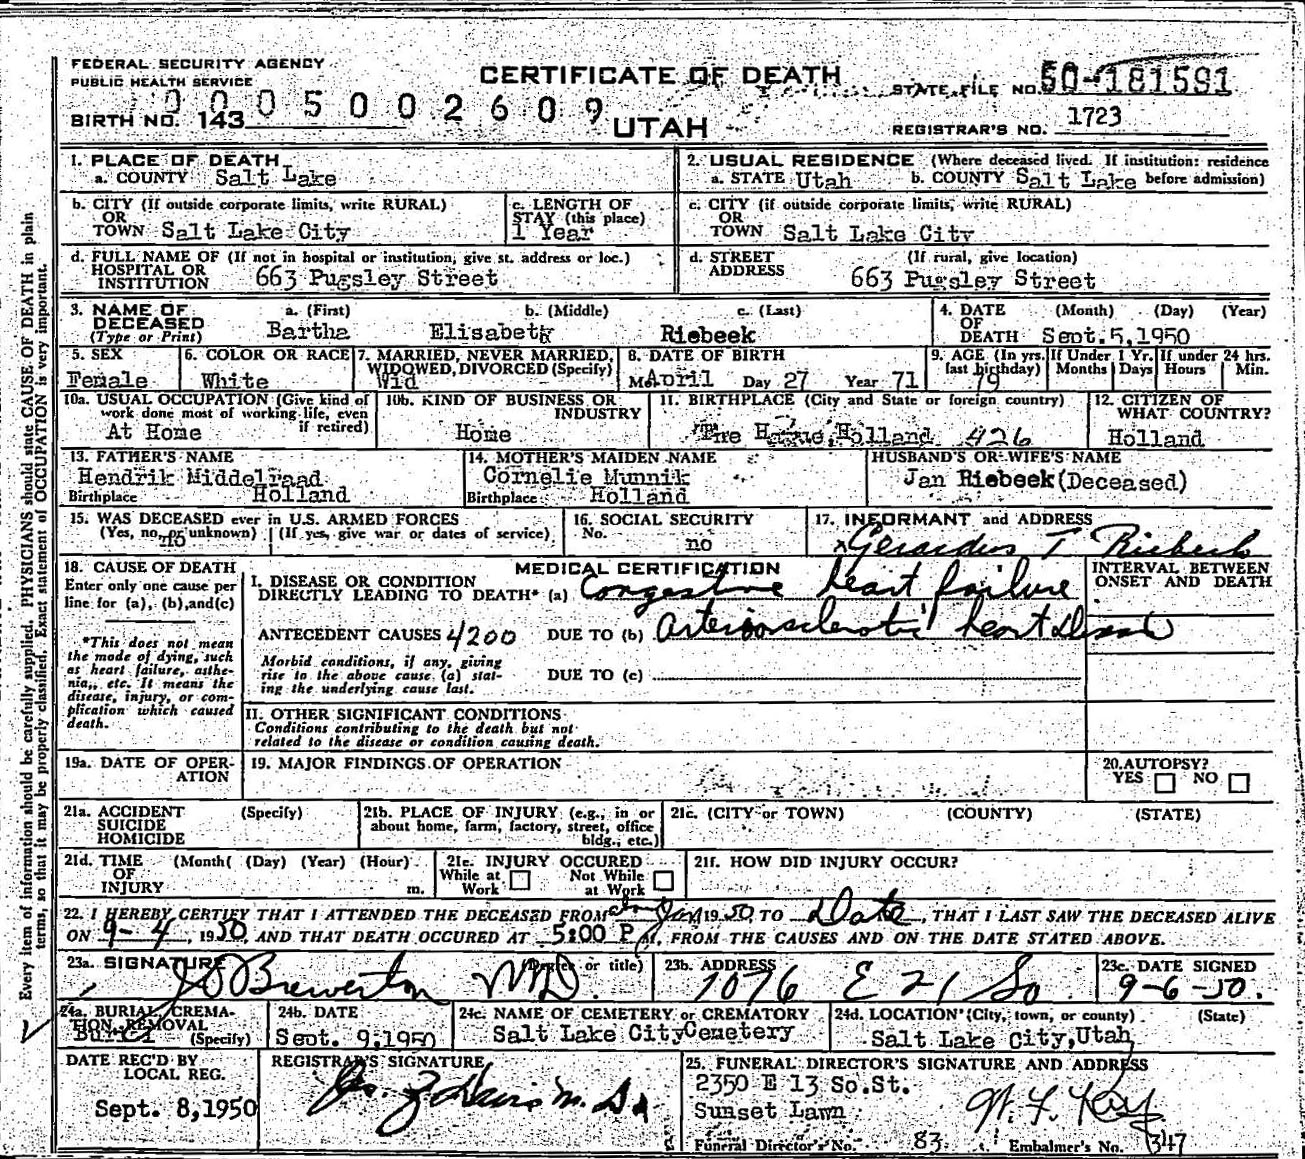 FEDERAL SECURITY AGENCY
PUBLIC HEALTH SERVICE
CERTIFICATE OF DEATH
STATE FILE NO. 50-181591
0005002609
BIRTH NO. 143
UTAH
REGISTRAR'S NO. 1723
Every item of information should be carefully supplied. PHYSICIANS should state CAUSE OF DEATH in plain
terms, so that it may be properly classified. Exact statement of OCCUPATION is very important.
1. PLACE OF DEATH
a. COUNTY Salt Lake
2. USUAL RESIDENCE (Where deceased lived. If institution: residence
a. STATE Utah b. COUNTY Salt Lake before admission)
b. CITY (If outside corporate limits, write RURAL)
OR
TOWN Salt Lake City
c. LENGTH OF
STAY (this place)
1 Year
c. CITY (if outside corporate limits, write RURAL)
OR
TOWN Salt Lake City
d. FULL NAME OF (If not in hospital or institution, give st. address or loc.)
HOSPITAL OR
INSTITUTION 663 Pugsley Street
d. STREET (If rural, give location)
ADDRESS 663 Pugsley Street
3. NAME OF a. (First) b. (Middle) c. (Last)
DECEASED
(Type or Print) Bartha Elisabeth Riebeek
4. DATE (Month) (Day) (Year)
OF
DEATH Sept. 5, 1950
5. SEX
Female
6. COLOR OR RACE
White
7. MARRIED, NEVER MARRIED,
WIDOWED, DIVORCED (Specify)
Wid
8. DATE OF BIRTH
April Day 27 Year 71
9. AGE (In yrs. last birthday)
79
If Under 1 Yr.
Months Days
If under 24 hrs.
Hours Min.
10a. USUAL OCCUPATION (Give kind of
work done most of working life, even
if retired)
At Home
10b. KIND OF BUSINESS OR
INDUSTRY
Home
11. BIRTHPLACE (City and State or foreign country)
The Hague, Holland 426
12. CITIZEN OF
WHAT COUNTRY?
Holland
13. FATHER'S NAME
Hendrik Middelraad
Birthplace Holland
14. MOTHER'S MAIDEN NAME
Cornelie Munnik
Birthplace Holland
HUSBAND'S OR WIFE'S NAME
Jan Riebeek (Deceased)
15. WAS DECEASED ever in U.S. ARMED FORCES
(Yes, no, or unknown) (If yes, give war or dates of service)
no
16. SOCIAL SECURITY
No.
no
17. INFORMANT and ADDRESS
x Gerardus T Riebeek
18. CAUSE OF DEATH
Enter only one cause per
line for (a), (b), and (c)
*This does not mean
the mode of dying, such
as heart failure, asthe-
nia, etc. It means the
disease, injury, or com-
plication which caused
death.
MEDICAL CERTIFICATION
I. DISEASE OR CONDITION
DIRECTLY LEADING TO DEATH* (a) Congestive heart failure
INTERVAL BETWEEN
ONSET AND DEATH
ANTECEDENT CAUSES 4200 DUE TO (b) Arteriosclerotic heart disease
Morbid conditions, if any, giving
rise to the above cause (a) stat-
ing the underlying cause last.
DUE TO (c)
II. OTHER SIGNIFICANT CONDITIONS
Conditions contributing to the death but not
related to the disease or condition causing death.
19a. DATE OF OPER-
ATION
19. MAJOR FINDINGS OF OPERATION
20. AUTOPSY?
YES NO
21a. ACCIDENT (Specify)
SUICIDE
HOMICIDE
21b. PLACE OF INJURY (e.g., in or
about home, farm, factory, street, office
bldg., etc.)
21c. (CITY or TOWN) (COUNTY) (STATE)
21d. TIME (Month( (Day) (Year) (Hour)
OF
INJURY m.
21e. INJURY OCCURED
While at Not While
Work at Work
21f. HOW DID INJURY OCCUR?
22. I HEREBY CERTIFY THAT I ATTENDED THE DECEASED FROM Jan 1950 TO Date, THAT I LAST SAW THE DECEASED ALIVE
ON 9-4, 1950, AND THAT DEATH OCCURED AT 5:00 P M, FROM THE CAUSES AND ON THE DATE STATED ABOVE.
23a. SIGNATURE (Degree or title)
J O Brewerton MD.
23b. ADDRESS
1076 E 21 So.
23c. DATE SIGNED
9-6-50.
24a. BURIAL, CREMA-
TION, REMOVAL
Burial (Specify)
24b. DATE
Sept. 9, 1950
24c. NAME OF CEMETERY or CREMATORY
Salt Lake City Cemetery
24d. LOCATION (City, town, or county) (State)
Salt Lake City, Utah
DATE REC'D BY
LOCAL REG.
Sept. 8, 1950
REGISTRAR'S SIGNATURE
25. FUNERAL DIRECTOR'S SIGNATURE AND ADDRESS
2350 E 13 So. St.
Sunset Lawn
Funeral Director's No. 83 Embalmer's No. 347